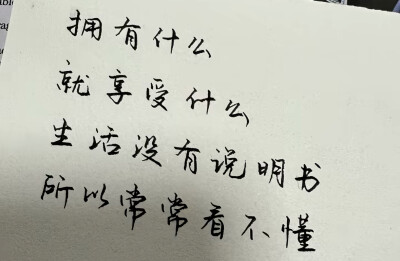 拥有什么
就享受什么
生活没有说明书
所以常常看不懂